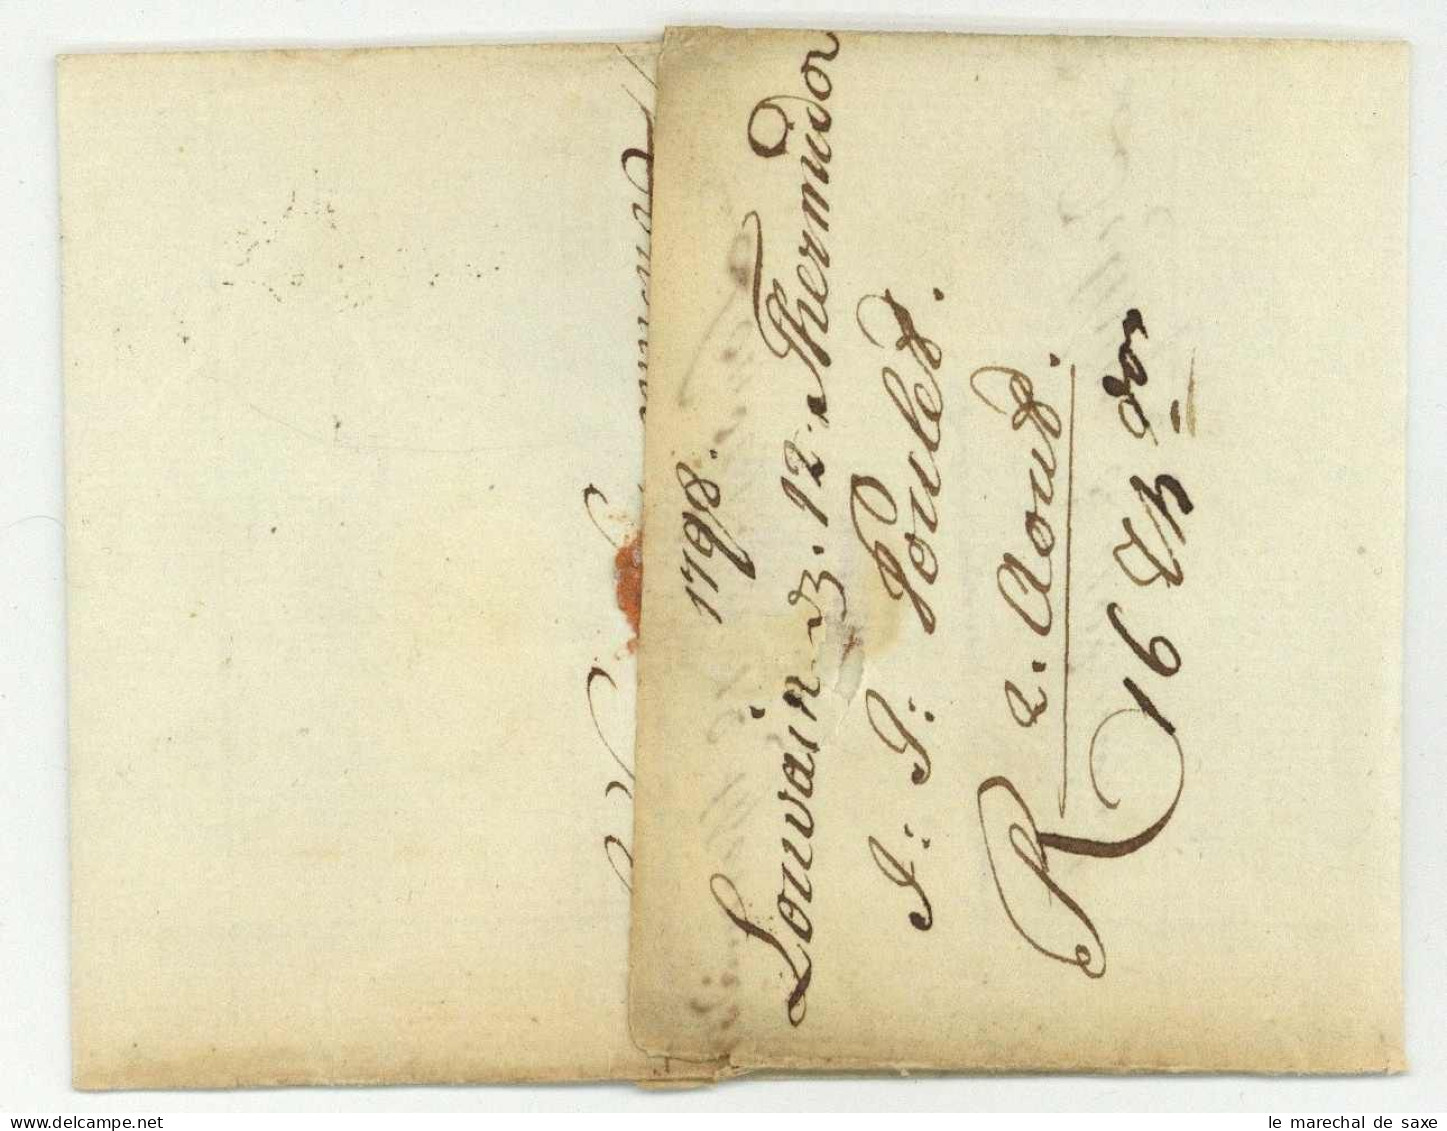 1798.
Louvain d. 12. Thermidor
J: P: Poulet.
2. Aout.
R 16 do
le marechal de saxe
delcampe.net